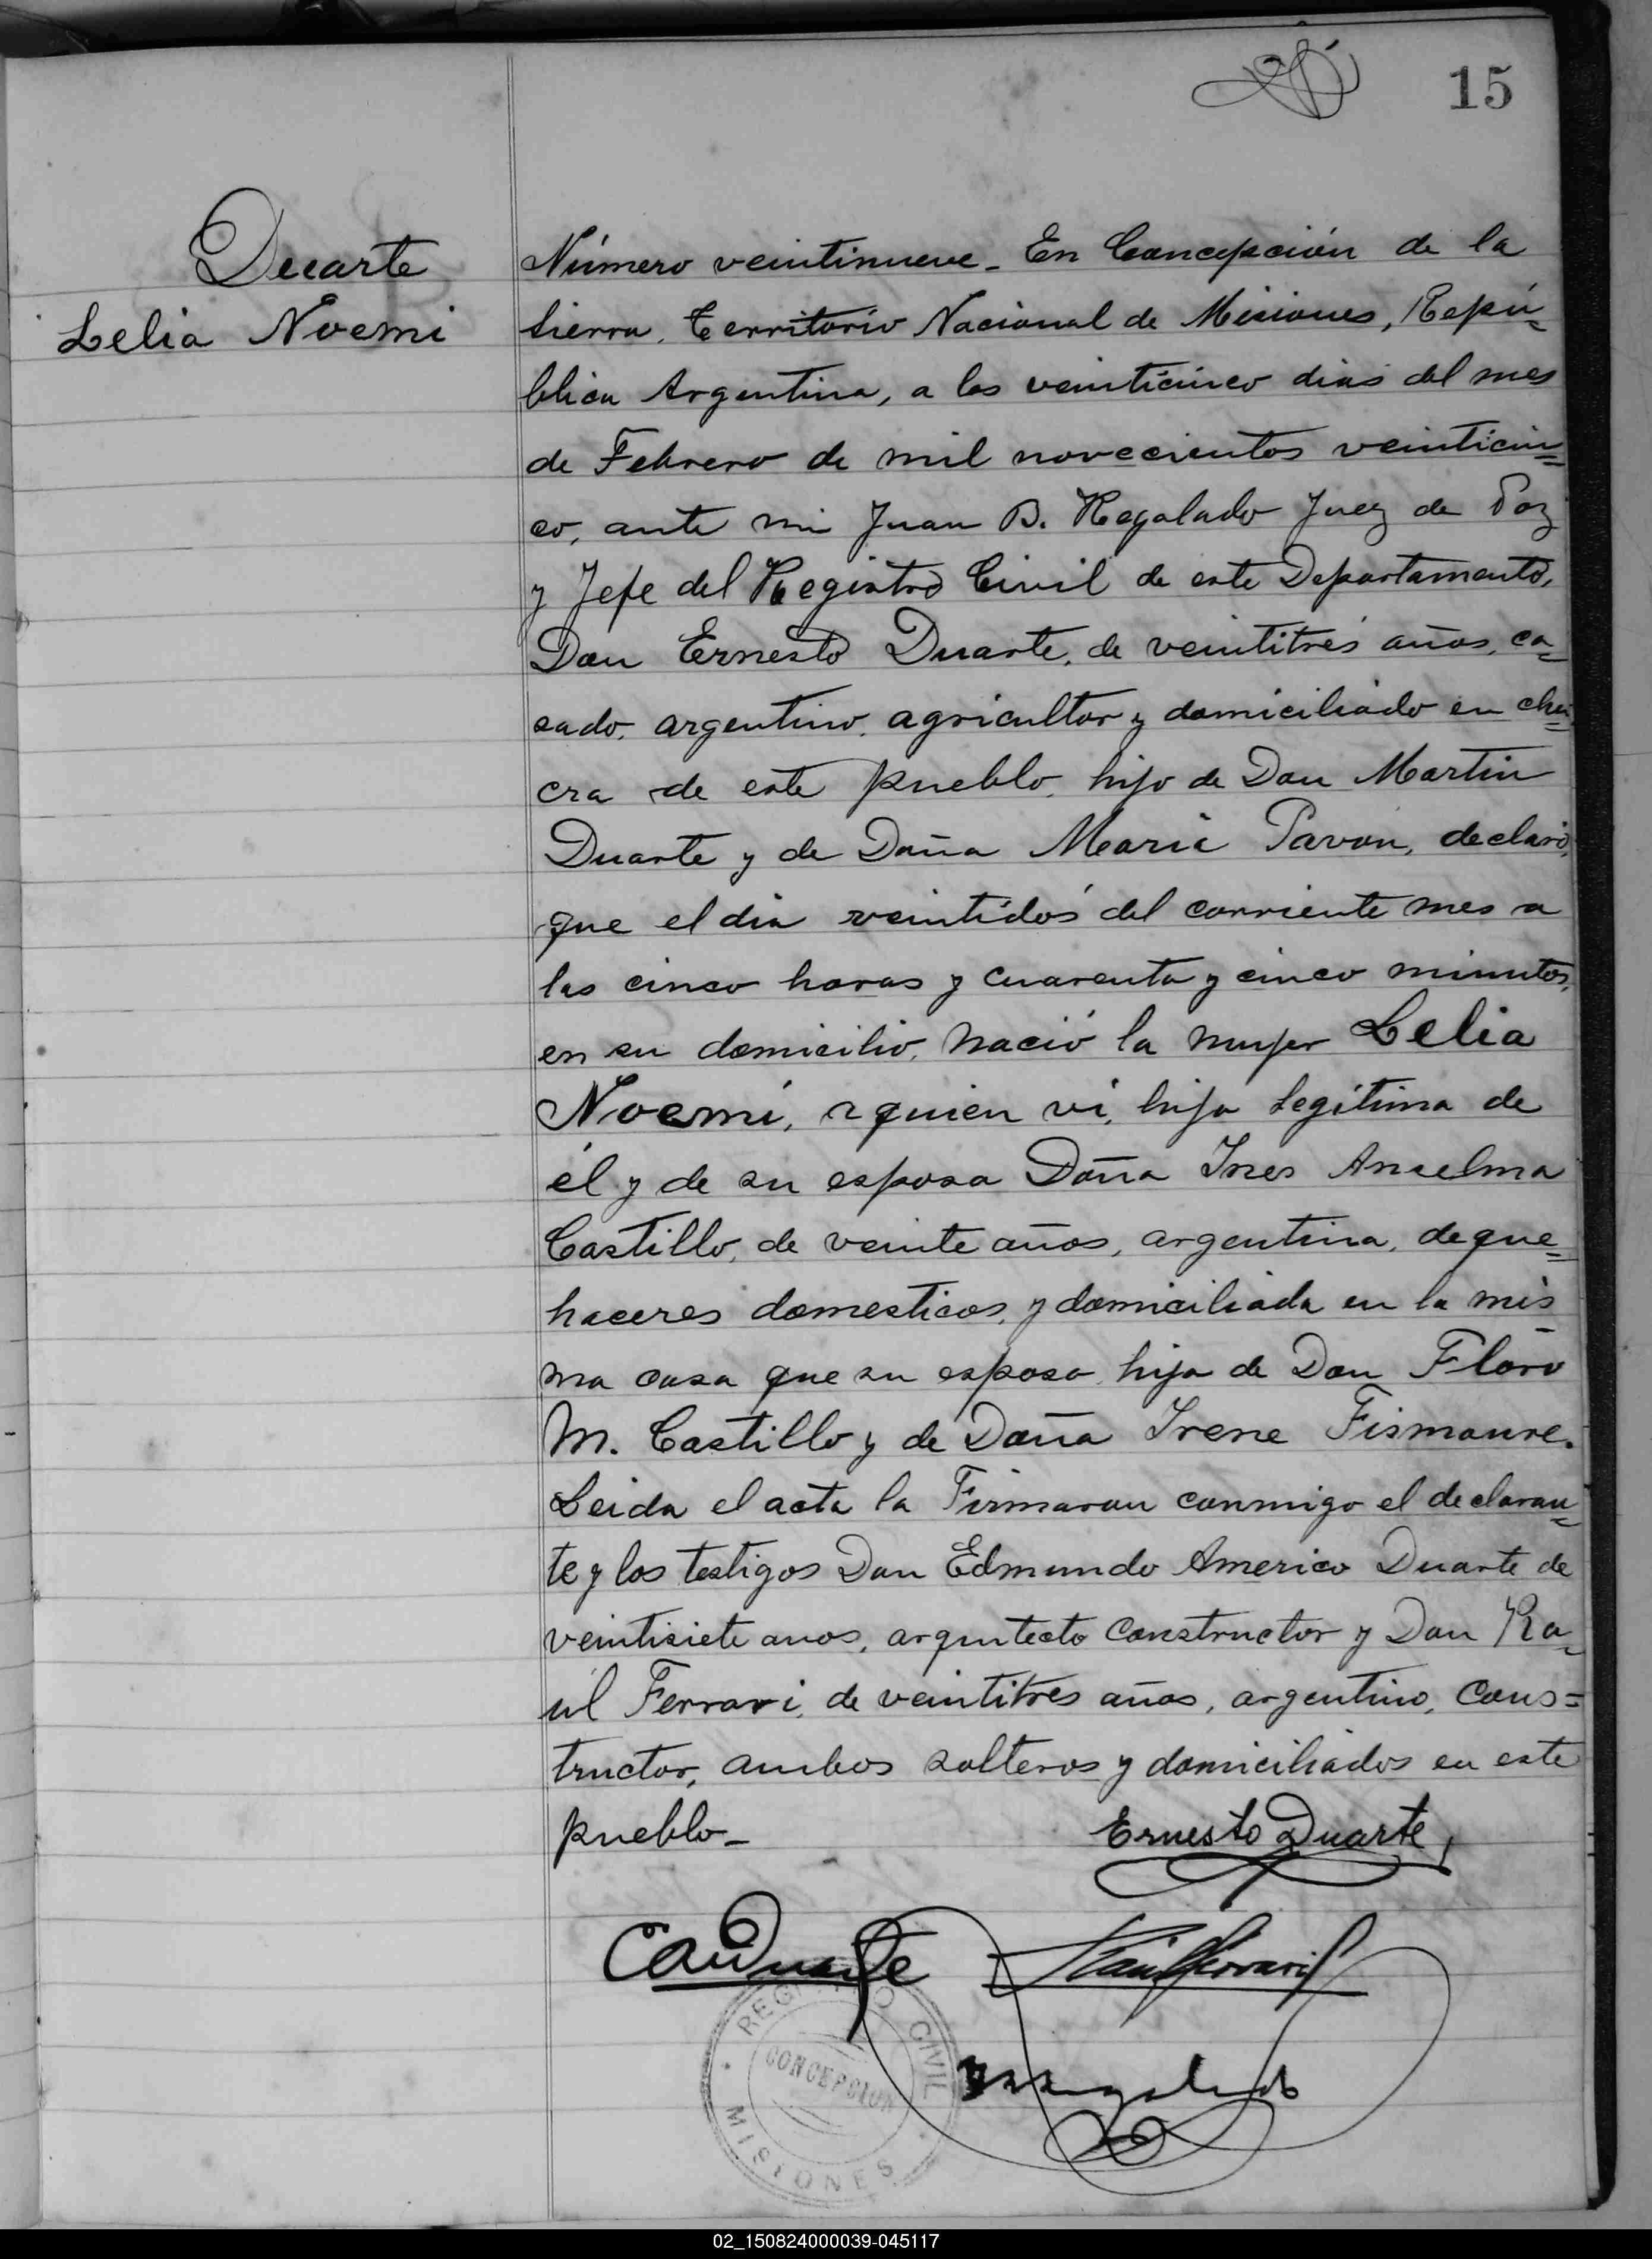 15
Duarte
Lelia Noemi
Número veintinueve_ En Concepción de la
sierra, Territorio Nacional de Misiones, Repú-
blica Argentina, a los veinticinco dias del mes
de Febrero de mil novecientos veinticin=
co, ante mi Juan B. Regalado Juez de Paz
y Jefe del Registro Civil de este Departamento,
Don Ernesto Duarte, de veintitrés años, ca=
sado, argentino, agricultor y domiciliado en cha=
cra de este pueblo, hijo de Don Martin
Duarte y de Doña Maria Pavon, declaró,
que el dia veintidós del corriente mes a
las cinco horas y cuarenta y cinco minutos,
en su domicilio, nació la mujer Lelia
Noemí, a quien ví, hija legítima de
él y de su esposa Doña Ines Anselma
Castillo, de veinte años, argentina, de que=
haceres domesticos, y domiciliada en la mis-
ma casa que su esposo, hija de Don Floro
M. Castillo y de Doña Irene Fismaure.
Leida el acta la Firmaron conmigo el declaran=
te y los testigos Don Edmundo Americo Duarte de
veintisiete anos, arquitecto constructor y Don Ra=
úl Ferrari, de veintitres años, argentino, cons=
tructor, ambos solteros y domiciliados en este
pueblo_
Ernesto Duarte
EADuarte
Raúl Ferrari
REGISTRO CIVIL
CONCEPCION
MISIONES
02_150824000039-045117